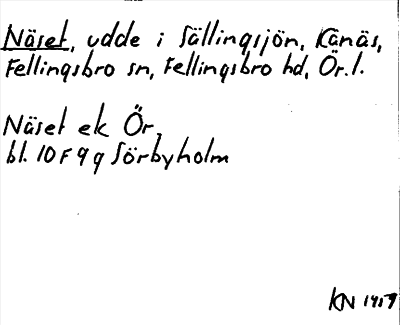 Näset, udde i Sällingsjön, Känäs,
Fellingsbro sn, Fellingsbro hd, Ör. l.
Näset ek Ör,
bl. 10 F 9 g Sörbyholm
KN 1957